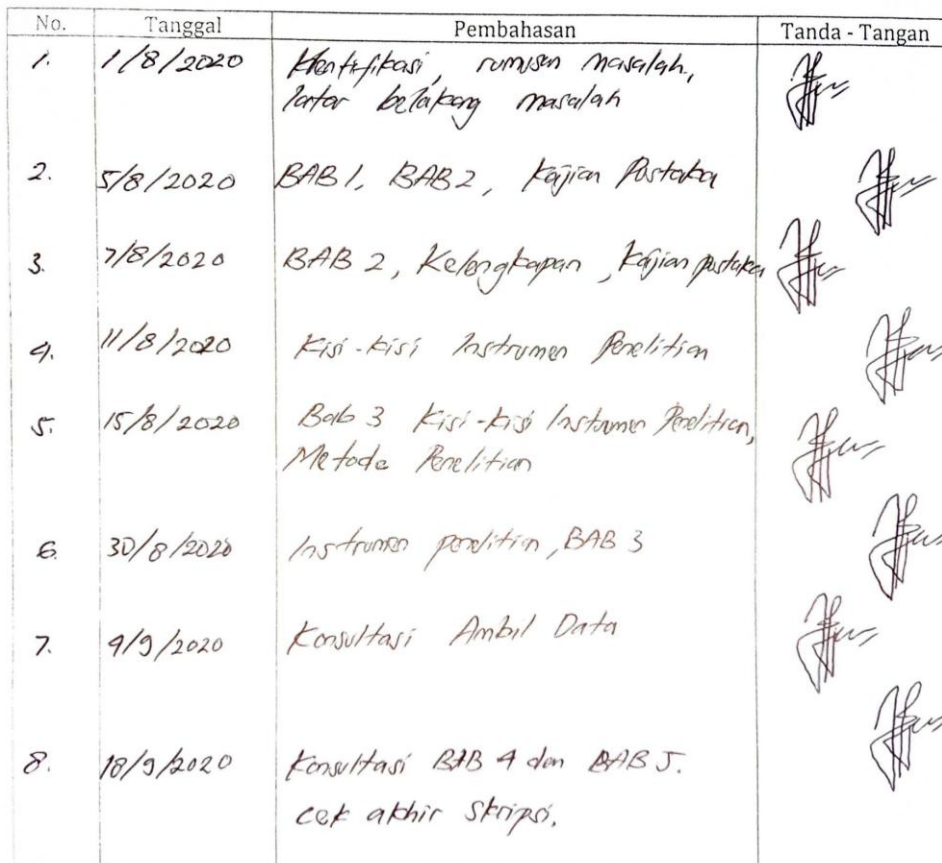 No. Tanggal Pembahasan Tanda - Tangan
1. 1/8/2020 Identifikasi, rumusan masalah,
latar belakang masalah
2. 5/8/2020 BAB 1, BAB 2, Kajian Pustaka
3. 7/8/2020 BAB 2, Kelengkapan, Kajian pustaka
4. 11/8/2020 Kisi-kisi Instrumen Penelitian
5. 15/8/2020 Bab 3 Kisi-kisi Instrumen Penelitian,
Metode Penelitian
6. 30/8/2020 Instrumen penelitian, BAB 3
7. 9/9/2020 Konsultasi Ambil Data
8. 18/9/2020 Konsultasi BAB 4 dan BAB 5.
cek akhir skripsi.